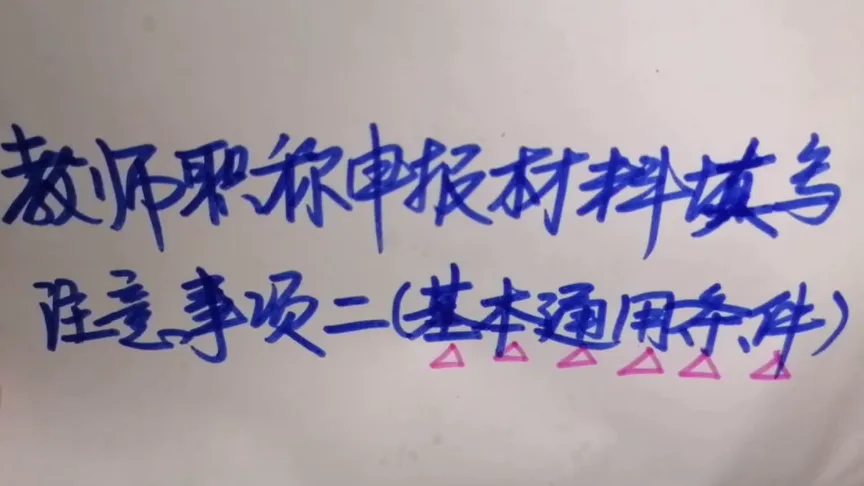 教师职称申报材料填写
注意事项二(基本通用条件)